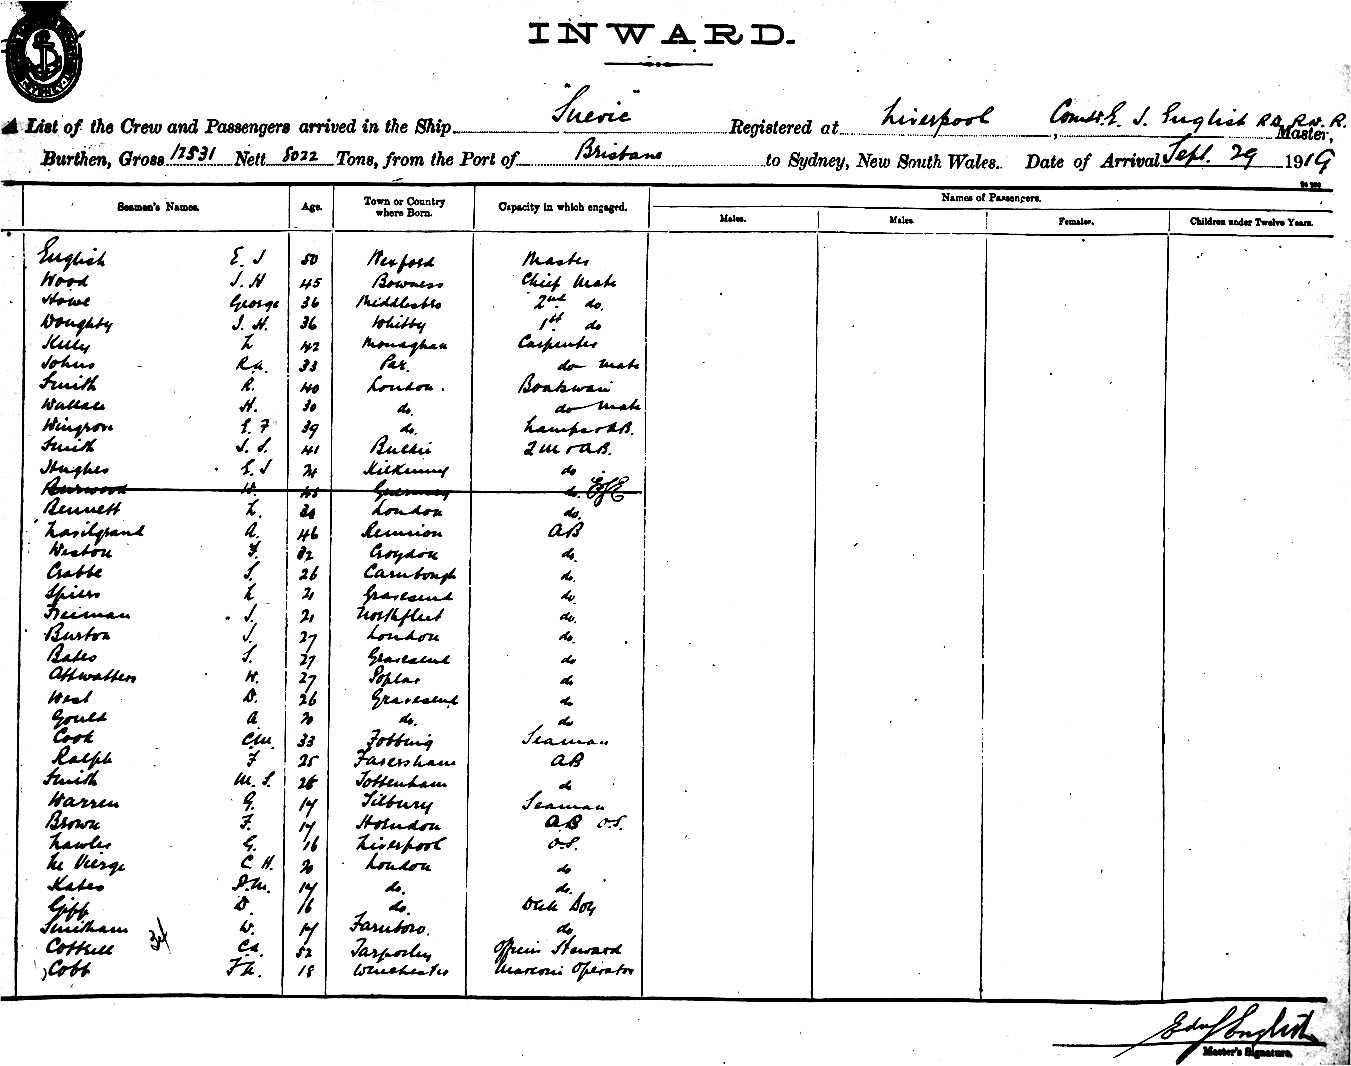 INWARD.
List of the Crew and Passengers arrived in the Ship "Suevic" Registered at Liverpool, Comdr. E. J. English RD, R.N.R. Master,
Burthen, Gross 12531 Nett 8022 Tons, from the Port of Brisbane to Sydney, New South Wales. Date of Arrival Sept. 29 1919
Names of Passengers.
Seamen's Names. Age. Town or Country where Born. Capacity in which engaged. Males. Males. Females. Children under Twelve Years.
English E. J 50 Wexford Master
Wood J. H 45 Bowness Chief Mate
Howe George 36 Middlesbro 2nd do.
Doughty J. H. 36 Whitby 1st do
Kelly L 42 Monaghan Carpenter
Johns R.A. 33 Par. do Mate
Smith R. 40 London. Boatswain
Wallace H. 30 do. do Mate
Wingrove E. F 39 do. Lamps & AB.
Smith J. S. 41 Buckie 2 M & AB.
Hughes E. J 21 Kilkenny do
Burwood W. 45 Guernsey do. EJE
Bennett L. 30 London do.
A. 46 Reunion AB
Weston F. 32 Croydon do.
Crabbe S. 26 do.
Spiers L 21 Gravesend do.
Freeman J. 21 Northfleet do.
Burton J. 27 London do.
Bates S. 27 Gravesend do
Attwatters W. 27 Poplar do
West D. 26 Gravesend do
Gould A 20 do. do
Cook C.W. 33 Fobbing Seaman
Ralph F 25 Faversham AB
Smith M. S. 28 Tottenham do
Warren G. 17 Tilbury Seaman
Brown F. 17 Horndon AB O.S.
Lawler G. 16 Liverpool O.S.
Le Vierge C. H. 20 London do
Kates P.M. 17 do. do.
Gipp D. 16 do. Deck Boy
Smitham W. 17 Farnboro. do
Cottrell C.A. 52 Tarporley Officers Steward
Cobb F.A. 18 Winchester Marconi Operator
Edw J English
Master's Signature.